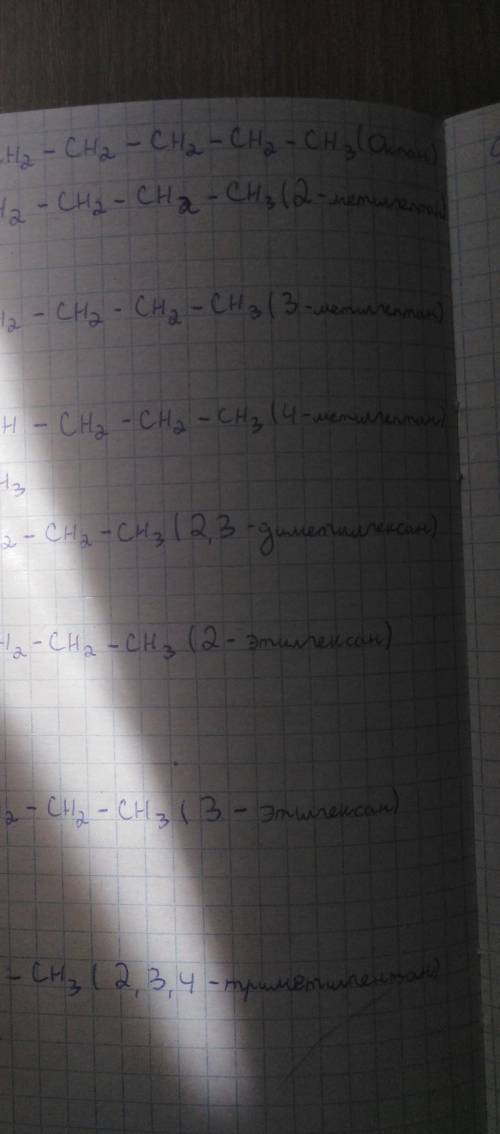 CH2 - CH2 - CH2 - CH2 - CH3 (Октан)
H2 - CH2 - CH2 - CH3 (2-метилгепта
H2 - CH2 - CH2 - CH3 (3-метилгептан)
H - CH2 - CH2 - CH3 (4-метилгептан)
H3
2 - CH2 - CH3 (2,3-диметилгексан)
H2 - CH2 - CH3 (2-этилгексан)
2 - CH2 - CH3 (3-этилгексан)
- CH3 (2,3,4-триметилпентан)